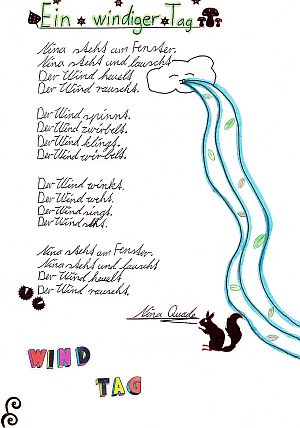 Ein windiger Tag
Nina steht am Fenster.
Nina steht und lauscht
Der Wind heult
Der Wind rauscht.
Der Wind spinnt.
Der Wind zwirbelt.
Der Wind klingt.
Der Wind wirbelt.
Der Wind winkt.
Der Wind weht.
Der Wind singt.
Der Wind
Nina steht am Fenster.
Nina steht und lauscht
Der Wind heult
Der Wind rauscht.
Nina Quade
WIND
TAG